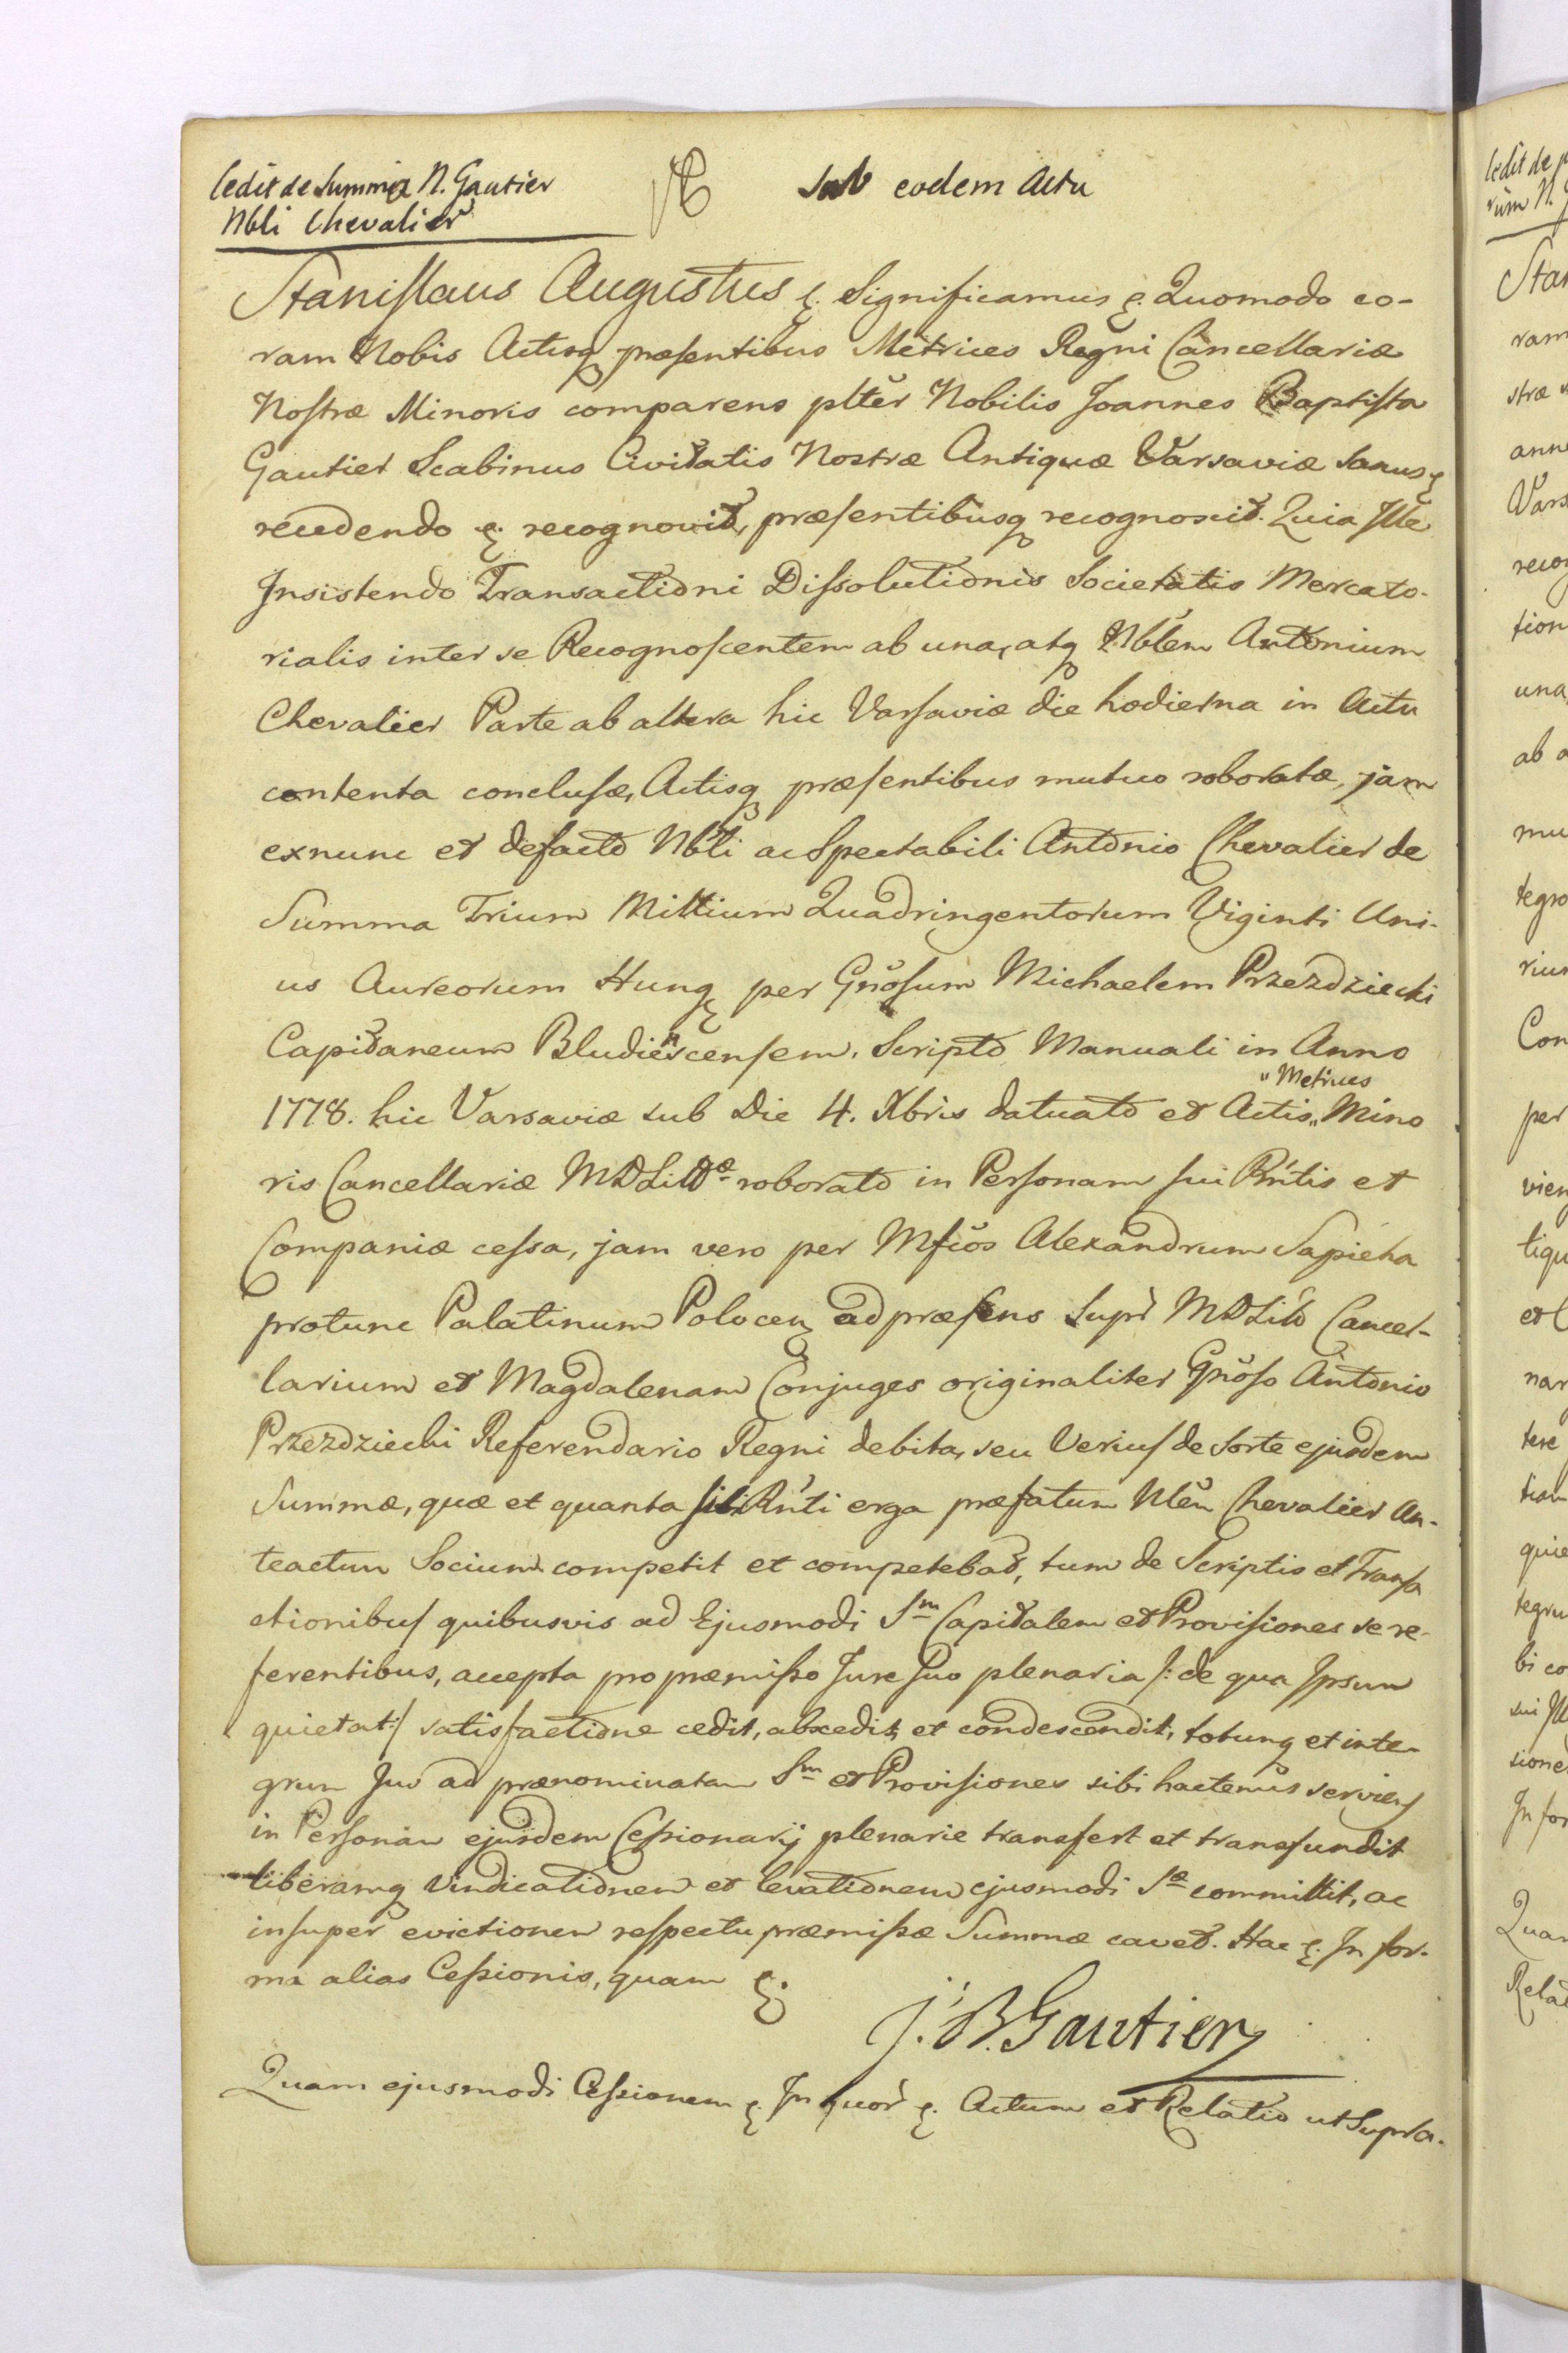 Cedit de Summa N. Gautier
Nbli Chevalier
sub eodem Actu
Stanislaus Augustus &. Significamus &. Quomodo co-
ram Nobis Actisq præsentibus Metrices Regni Cancellariæ
Nostræ Minoris comparens plter Nobilis Joannes Baptista
Gautier Scabinus Civitatis Nostræ Antiquæ Varsaviæ sanus &
recedendo &. recognovit, præsentibusq recognoscit. Quia Ille
Insistendo Transactioni Dissolutionis Societatis Mercato-
rialis inter se Recognoscentem ab una, atq Nblem Antonium
Chevalier Parte ab altera hic Varsaviæ die hodierna in Actu
contenta conclusæ, Actisq præsentibus mutuo roboratæ, jam
exnunc et defacto Nbli ac Spectabili Antonio Chevalier de
Summa Trium Millium Quadringentorum Viginti Uni-
us Aureorum Hung per Gnosum Michaelem Przezdziecki
Capitaneum Bludnicensem, Scripto Manuali in Anno
" Metrices
1778. hic Varsaviæ sub Die 4. Xbris datuato et Actis „ Mino
ris Cancellariæ MDLittæ roborato in Personam sui Rntis et
Companiæ cessa, jam vero per Mfcos Alexandrum Sapieha
protunc Palatinum Polocen ad præsens Supr MDLitt Cancel-
larium et Magdalenam Conjuges originaliter Gnoso Antonio
Przezdziecki Referendario Regni debita, seu Verius de Sorte ejusdem
Summæ, quæ et quanta sibi Rnti erga præfatum Nlem Chevalier An-
teactum Socium competit et competebat, tum de Scriptis et Transa
ctionibus quibusvis ad Ejusmodi Sm Capitalem et Provisiones se re-
ferentibus, accepta pro præmisso Jure Suo plenaria /: de qua Ipsum
quietat :/ satisfactione cedit, abscedit, et condescendit, totumq et inte-
grum Jus ad prænominatam Sm et Provisiones sibi hactenus serviens
in Personam ejusdem Cessionarij plenarie transfert et transfundit
liberamq Vindicationem et levationem ejusmodi Sæ committit, ac
insuper evictionem respectu præmissæ Summæ cavet. Hac &. In for-
ma alias Cessionis, quam &.
J. B. Gautier
Quam ejusmodi Cessionem &. In quor &. Actum et Relatio ut Supra.